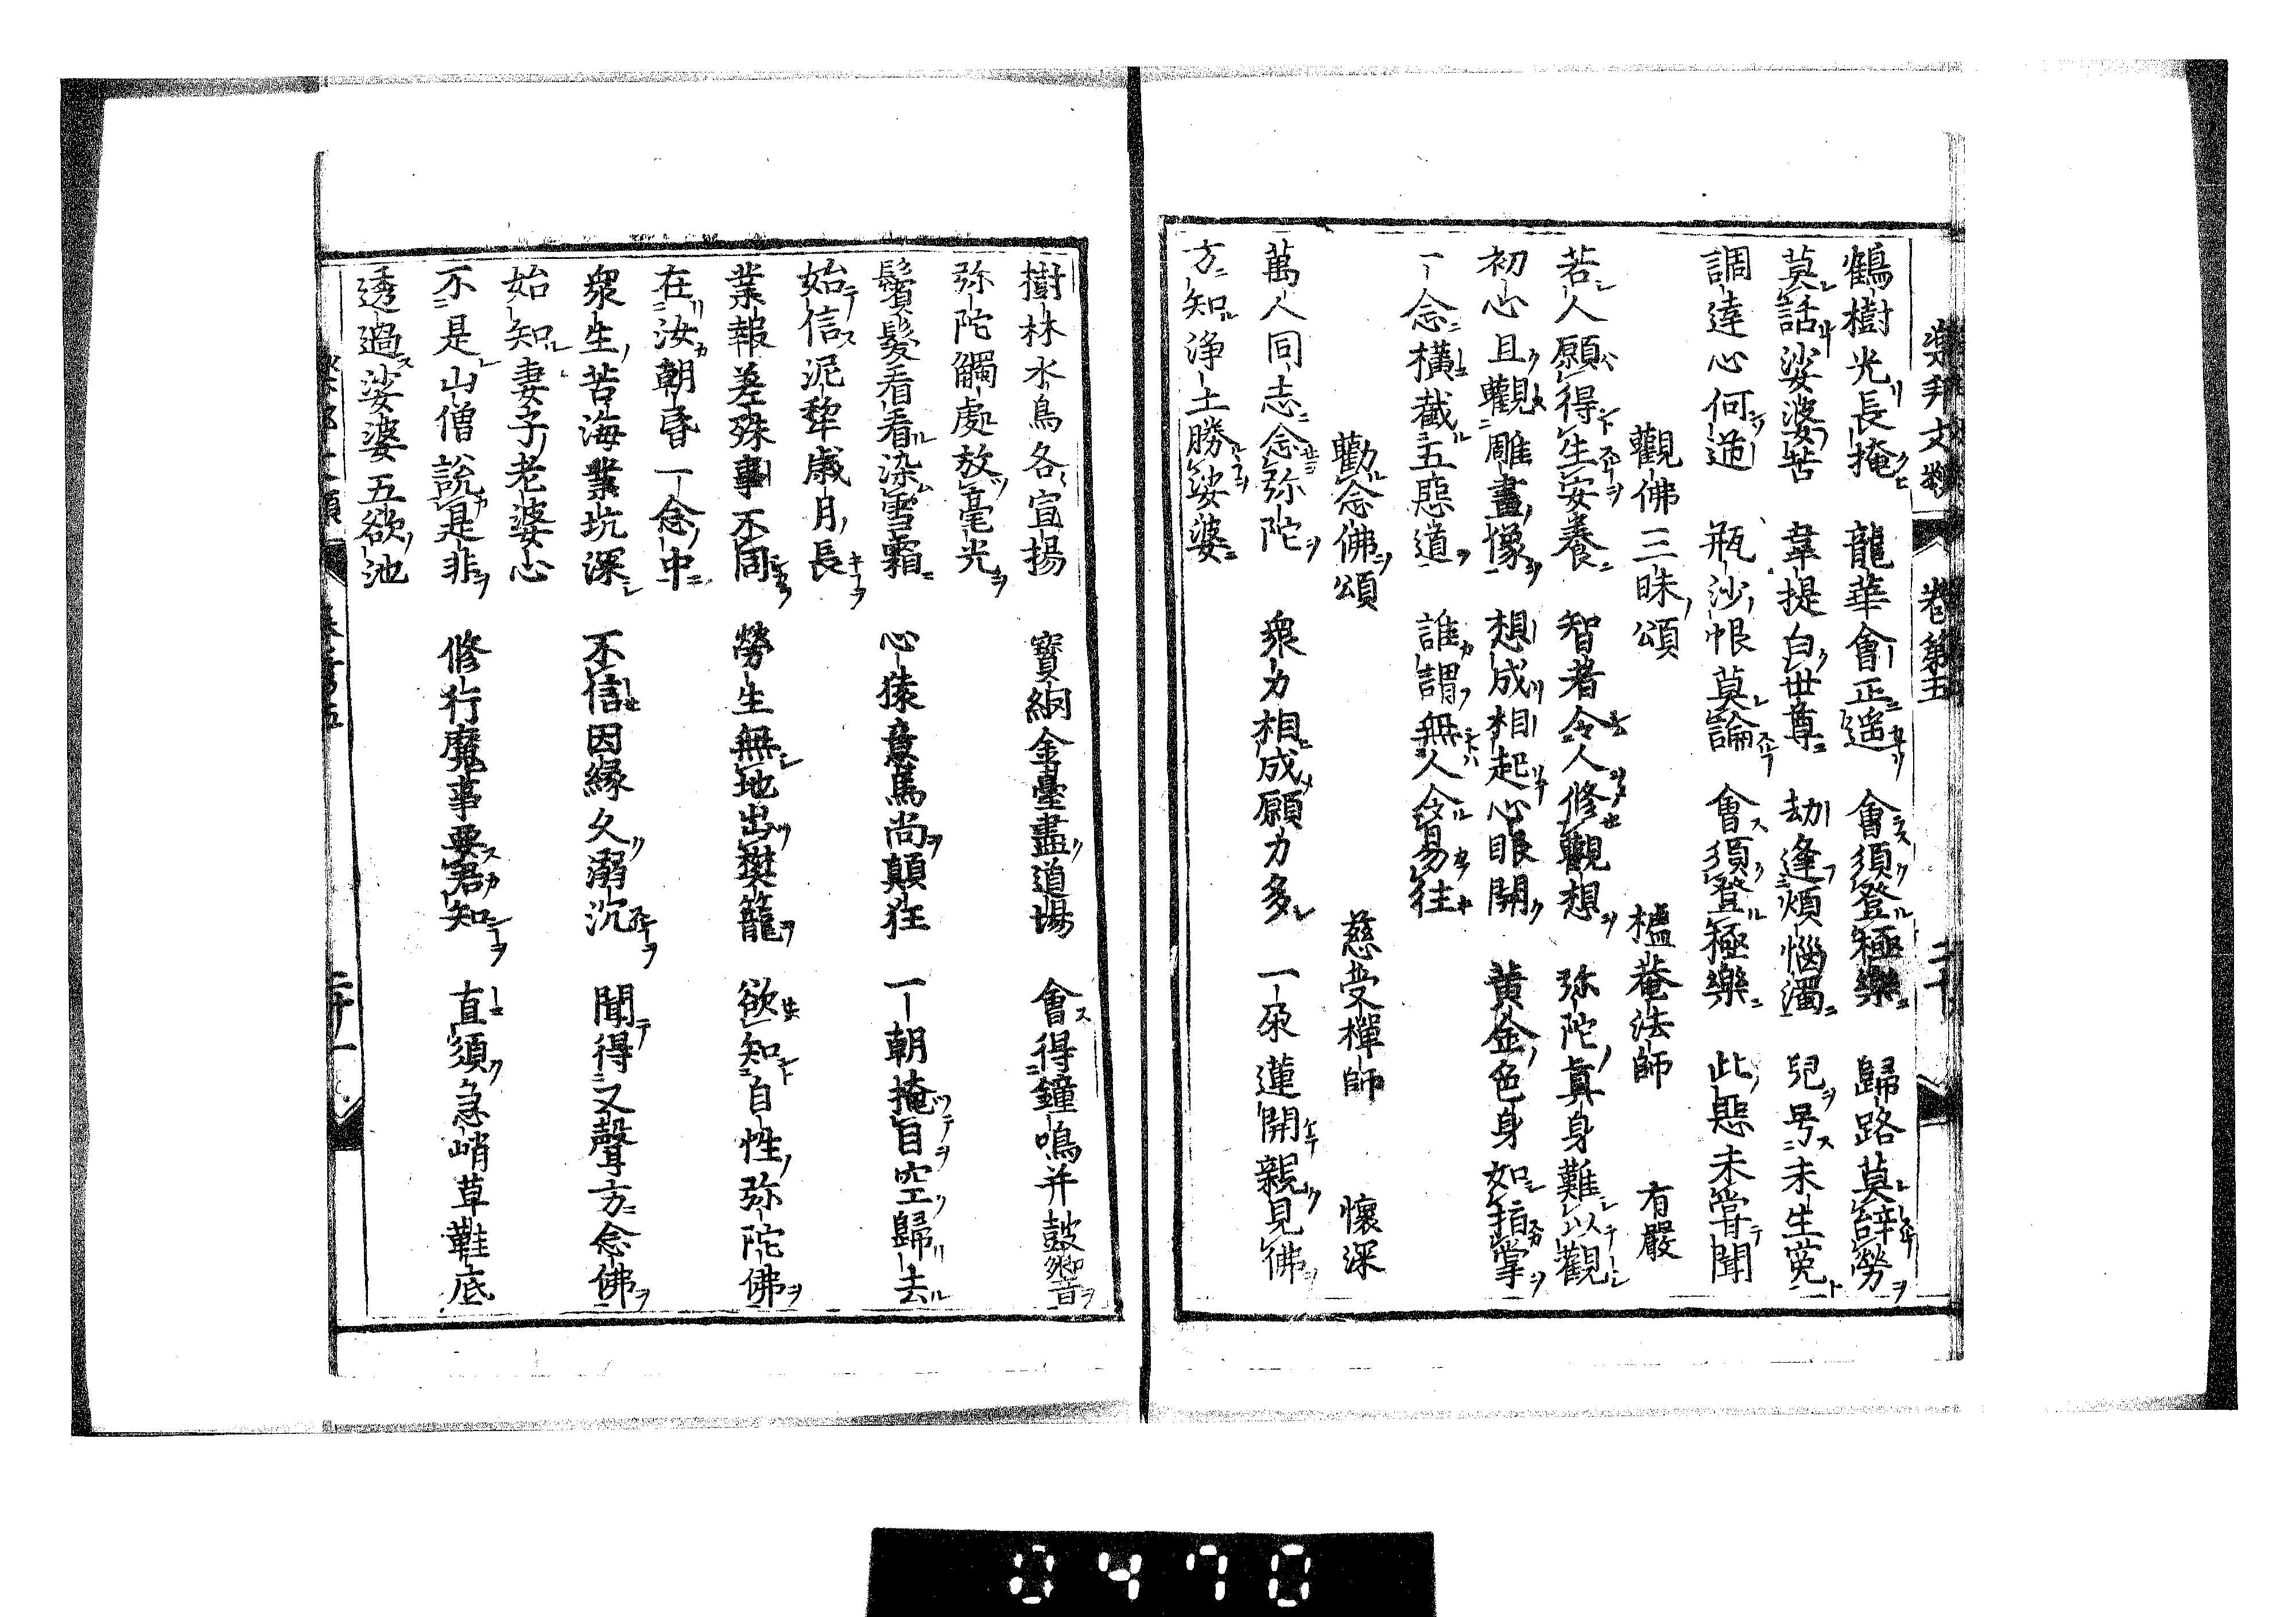 樂邦文類 卷第五 二十
鶴樹光長掩 龍華會正遥 會須登極樂 歸路莫辭勞
莫話娑婆苦 韋提白世尊 劫逢煩惱濁 兒号未生冤
調達心何逆 瓶沙恨莫論 會須登極樂 此惡未甞聞
觀佛三昧頌 櫨菴法師 有嚴
若人願得生安養 智者令人修觀想 弥陀真身難以觀
初心且觀雕畫像 想成相起心眼開 黄金色身如指掌
一念橫截五惡道 誰謂無人令易往
勸念佛頌 慈受禪師 懷深
萬人同志念弥陀 衆力相成願力多 一朶蓮開親見佛
方知淨土勝娑婆
樹林水鳥各宣揚 寶網金臺盡道場 會得鐘鳴并鼓響
弥陀觸處放毫光
鬢髮看看染雪霜 心猿意馬尚顛狂 一朝掩目空歸去
始信泥犂歲月長
業報差殊事不同 勞生無地出樊籠 欲知自性弥陀佛
在汝朝昏一念中
衆生苦海業坑深 不信因緣久溺沉 聞得叉聲方念佛
始知妻子老婆心
不是山僧說是非 修行魔事要君知 直須急峭草鞋底
透過娑婆五欲池
樂邦文類 卷第五 二十一
0470